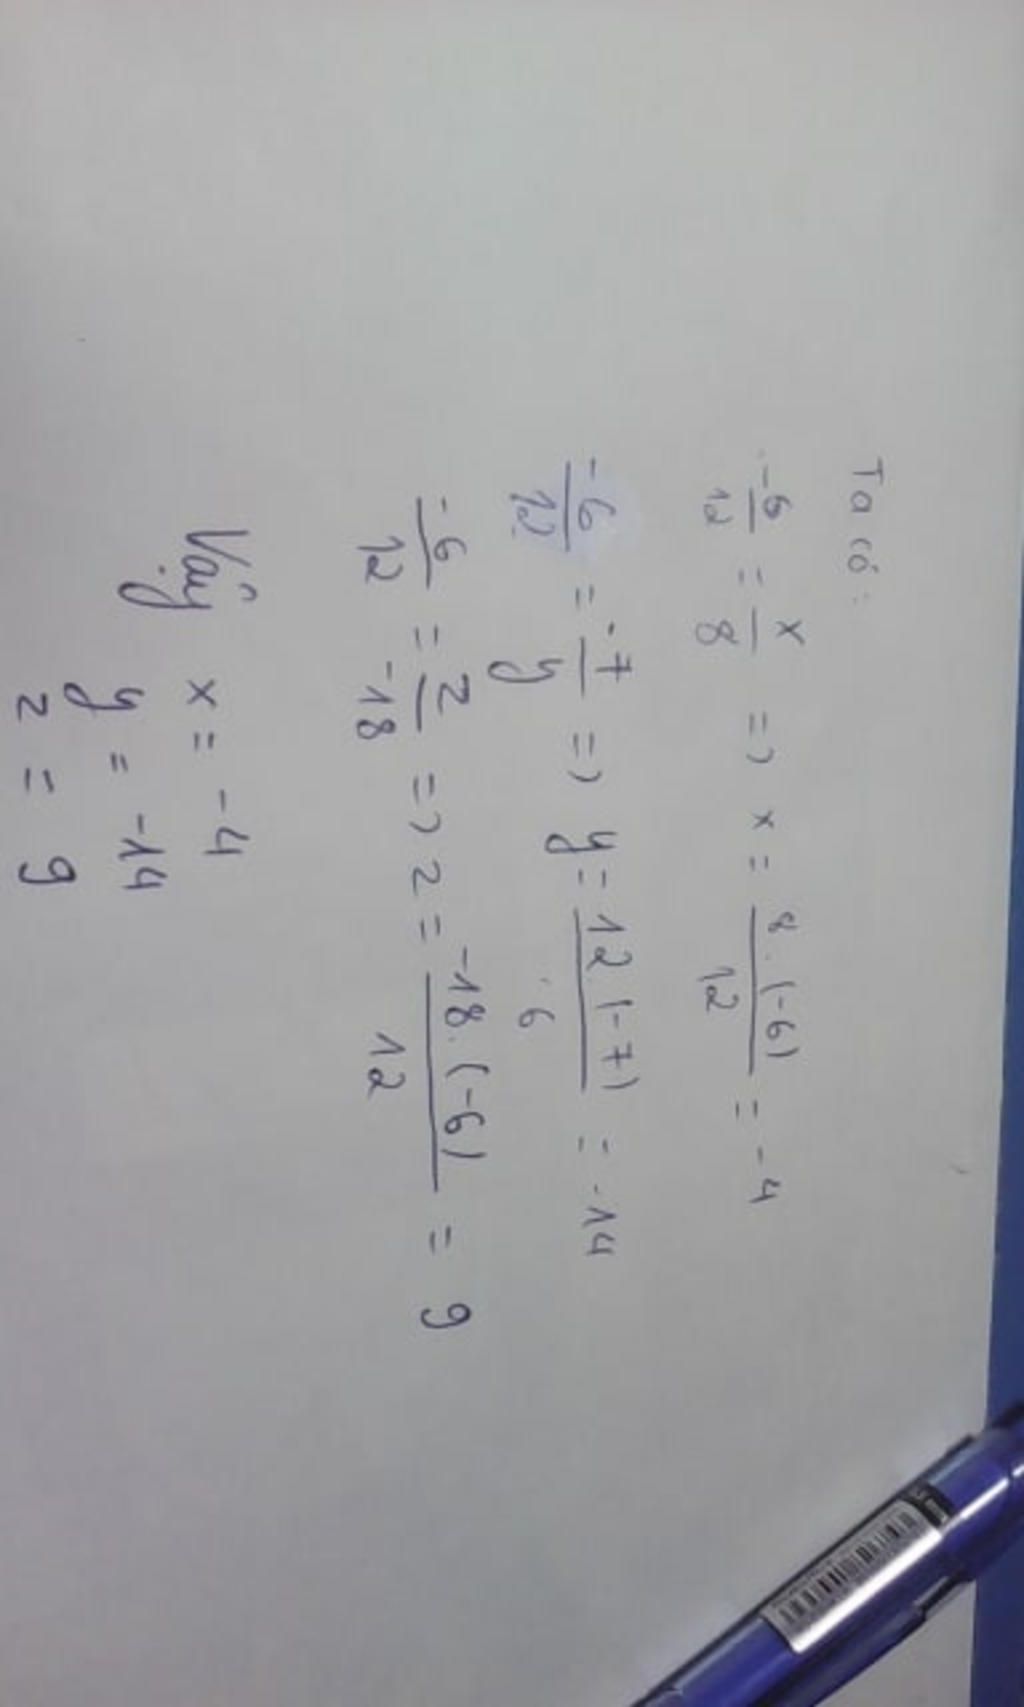 Ta có:
-6/12 = x/8 => x = 8.(-6)/12 = -4
-6/12 = -7/y => y = 12.(-7)/6 = -14
-6/12 = z/-18 => z = -18.(-6)/12 = 9
Vậy x = -4
y = -14
z = 9